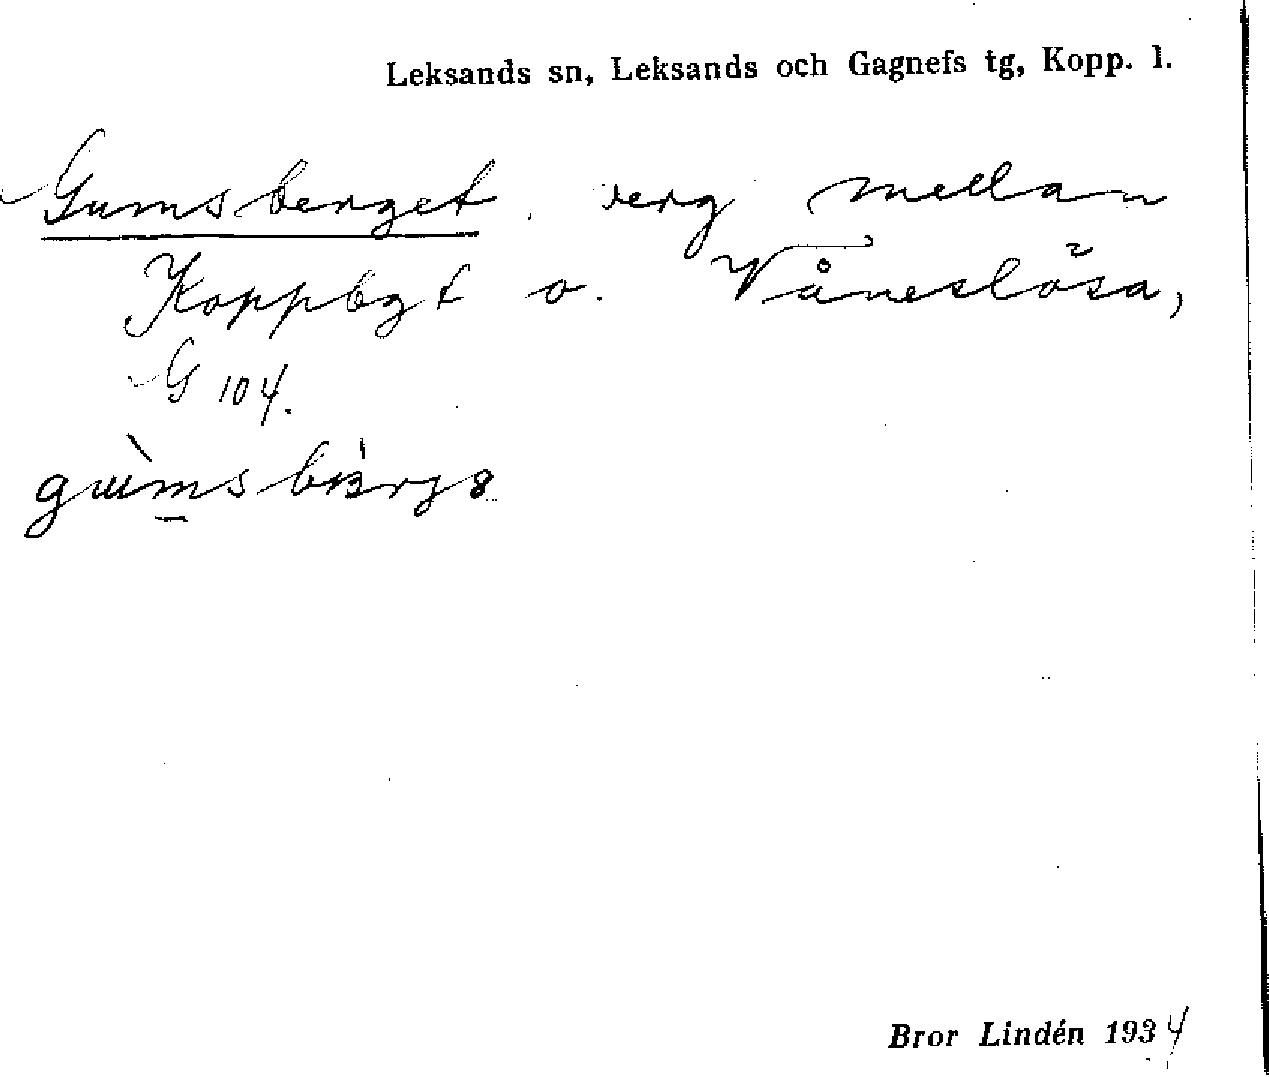 Leksands sn, Leksands och Gagnefs tg, Kopp. l.
Gumsberget, berg mellan
Koppbgt o. Våneslösa,
G 104.
Bror Lindén 1934